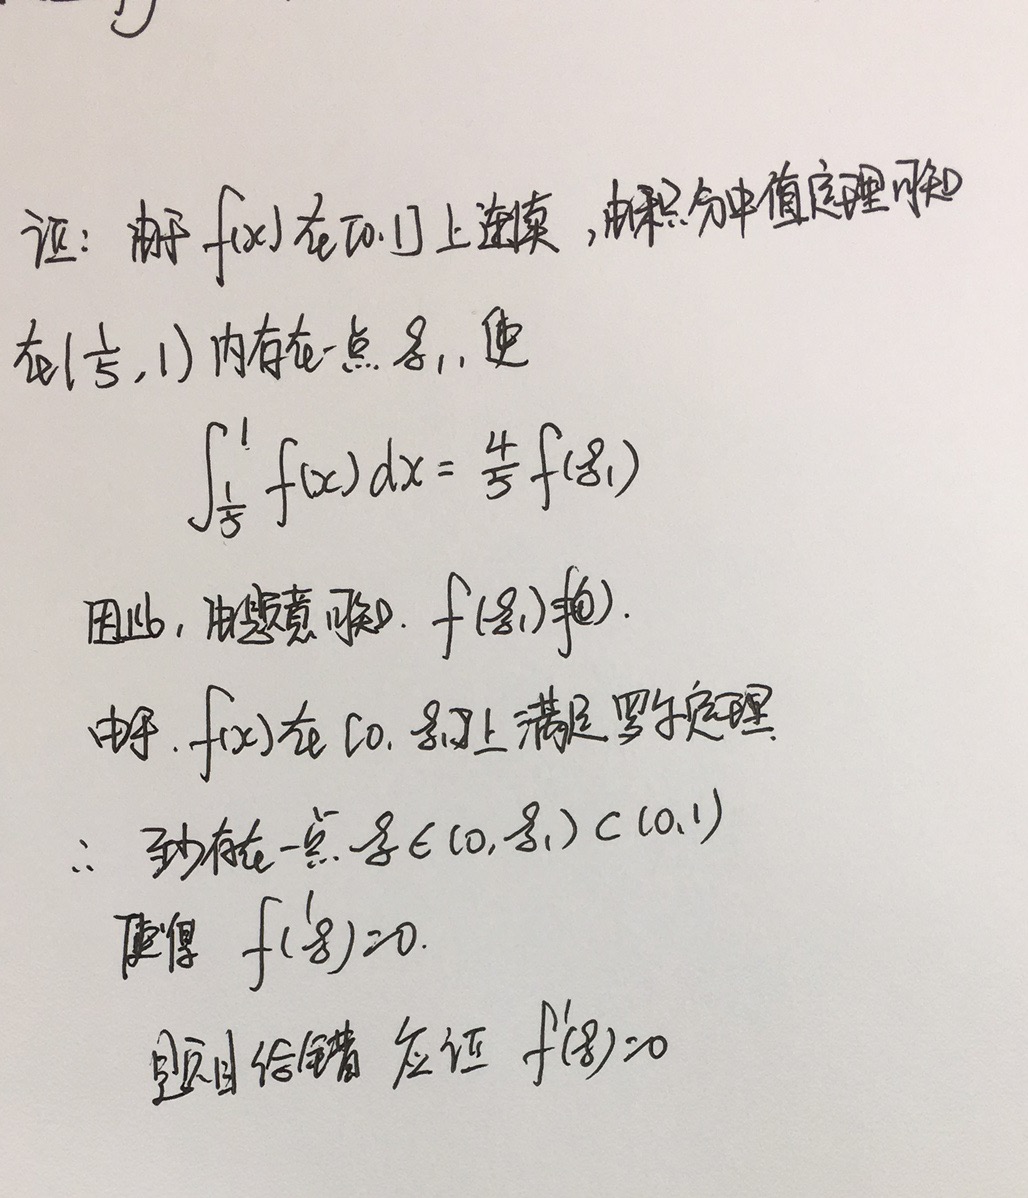 证：由于 f(x) 在[0,1]上连续，由积分中值定理可知
在(1/5, 1) 内存在一点 ξ₁, 使
∫_{1/5}^{1} f(x) dx = 4/5 f(ξ₁)
因此, 由题意可知. f(ξ₁)=f(0).
由于. f(x) 在 [0, ξ₁]上满足罗尔定理
∴ 至少存在一点 ξ∈(0, ξ₁)⊂(0,1)
使得 f'(ξ)=0.
题目给错 应证 f'(ξ)=0